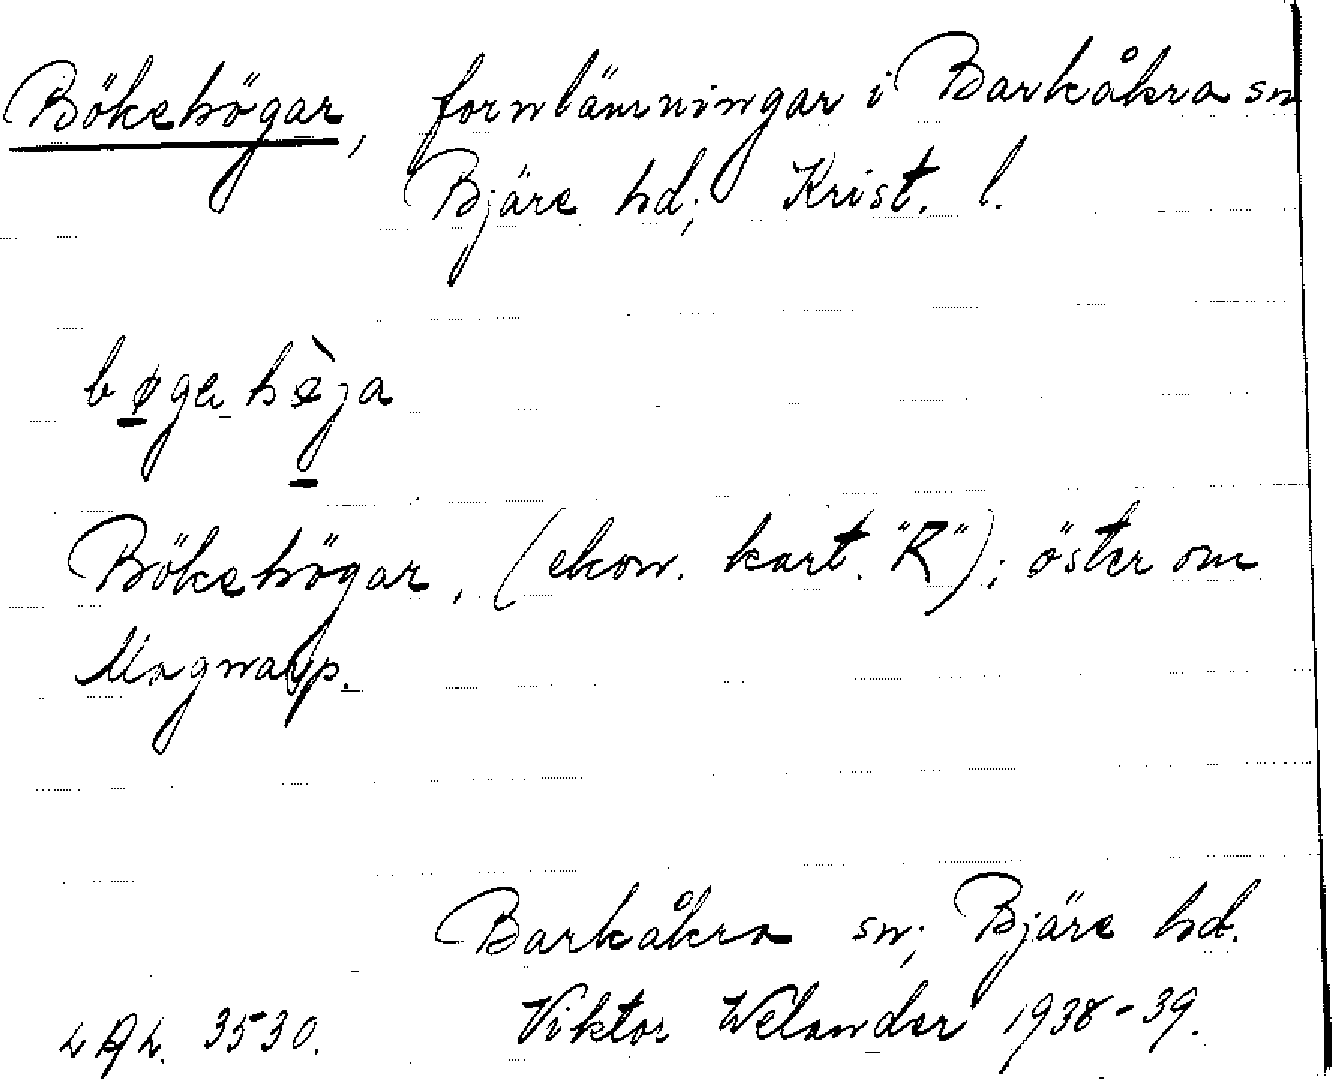 Bökehögar, fornlämningar i Barkåkra sn
Bjäre hd; Krist. l.
bøge hèja
Bökehögar, (ekon. kart. "R"); öster om
Magnarp.
Barkåkra sn; Bjäre hd.
LAL. 3530. Viktor Welander 1938-39.